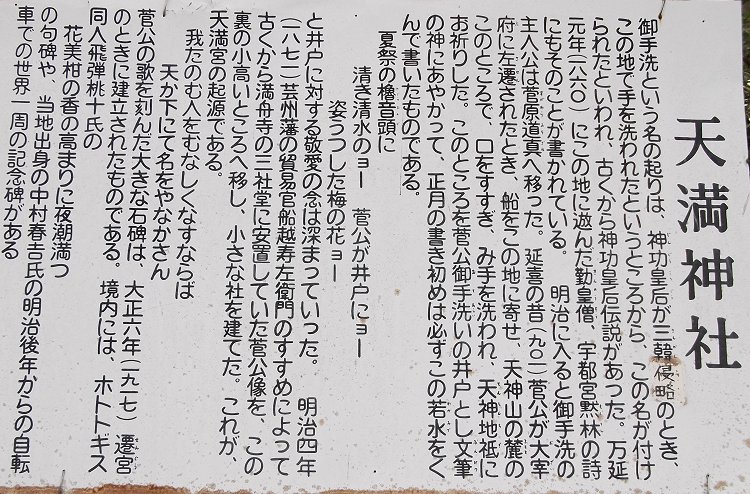 天満神社
御手洗という名の起りは、神功皇后が三韓侵略のとき、
この地で手を洗われたというところから、この名が付け
られたといわれ、古くから神功皇后伝説があった。万延
元年(一八六〇)にこの地に遊んだ勤皇僧、宇都宮黙林の詩
にもそのことが書かれている。 明治に入ると御手洗の
主人公は菅原道真へ移った。延喜の昔(九〇一)菅公が大宰
府に左遷されたとき、船をこの地に寄せ、天神山の麓の
このところで、口をすすぎ、み手を洗われ、天神地祗に
お祈りした。このところを菅公御手洗いの井戸とし文筆
の神にあやかって、正月の書き初めは必ずこの若水をく
んで書いたものである。
夏祭の櫓音頭に
清き清水のヨー 菅公が井戸にヨー
姿うつした梅の花ョー
と井戸に対する敬愛の念は深まっていった。 明治四年
(一八七一)芸州藩の貿易官船越寿左衛門のすすめによって
古くから満舟寺の三社堂に安置していた菅公像を、この
裏の小高いところへ移し、小さな社を建てた。これが、
天満宮の起源である。
我たのむ人をむなしくなすならば
天か下にて名をやなかさん
菅公の歌を刻んだ大きな石碑は、大正六年(一九一七)遷宮
のときに建立されたものである。境内には、ホトトギス
同人飛弾桃十氏の
花美柑の香の高まりに夜潮満つ
の句碑や、当地出身の中村春吉氏の明治後年からの自転
車での世界一周の記念碑がある